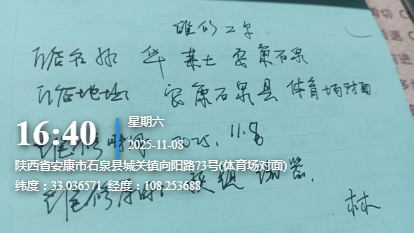 维修工单
门店名称 华莱士安康石泉
门店地址 安康石泉县体育场对面
16:40
星期六
2025-11-08
维修时间 2025.11.8
陕西省安康市石泉县城关镇向阳路73号(体育场对面)
纬度:33.036571 经度:108.253688
林